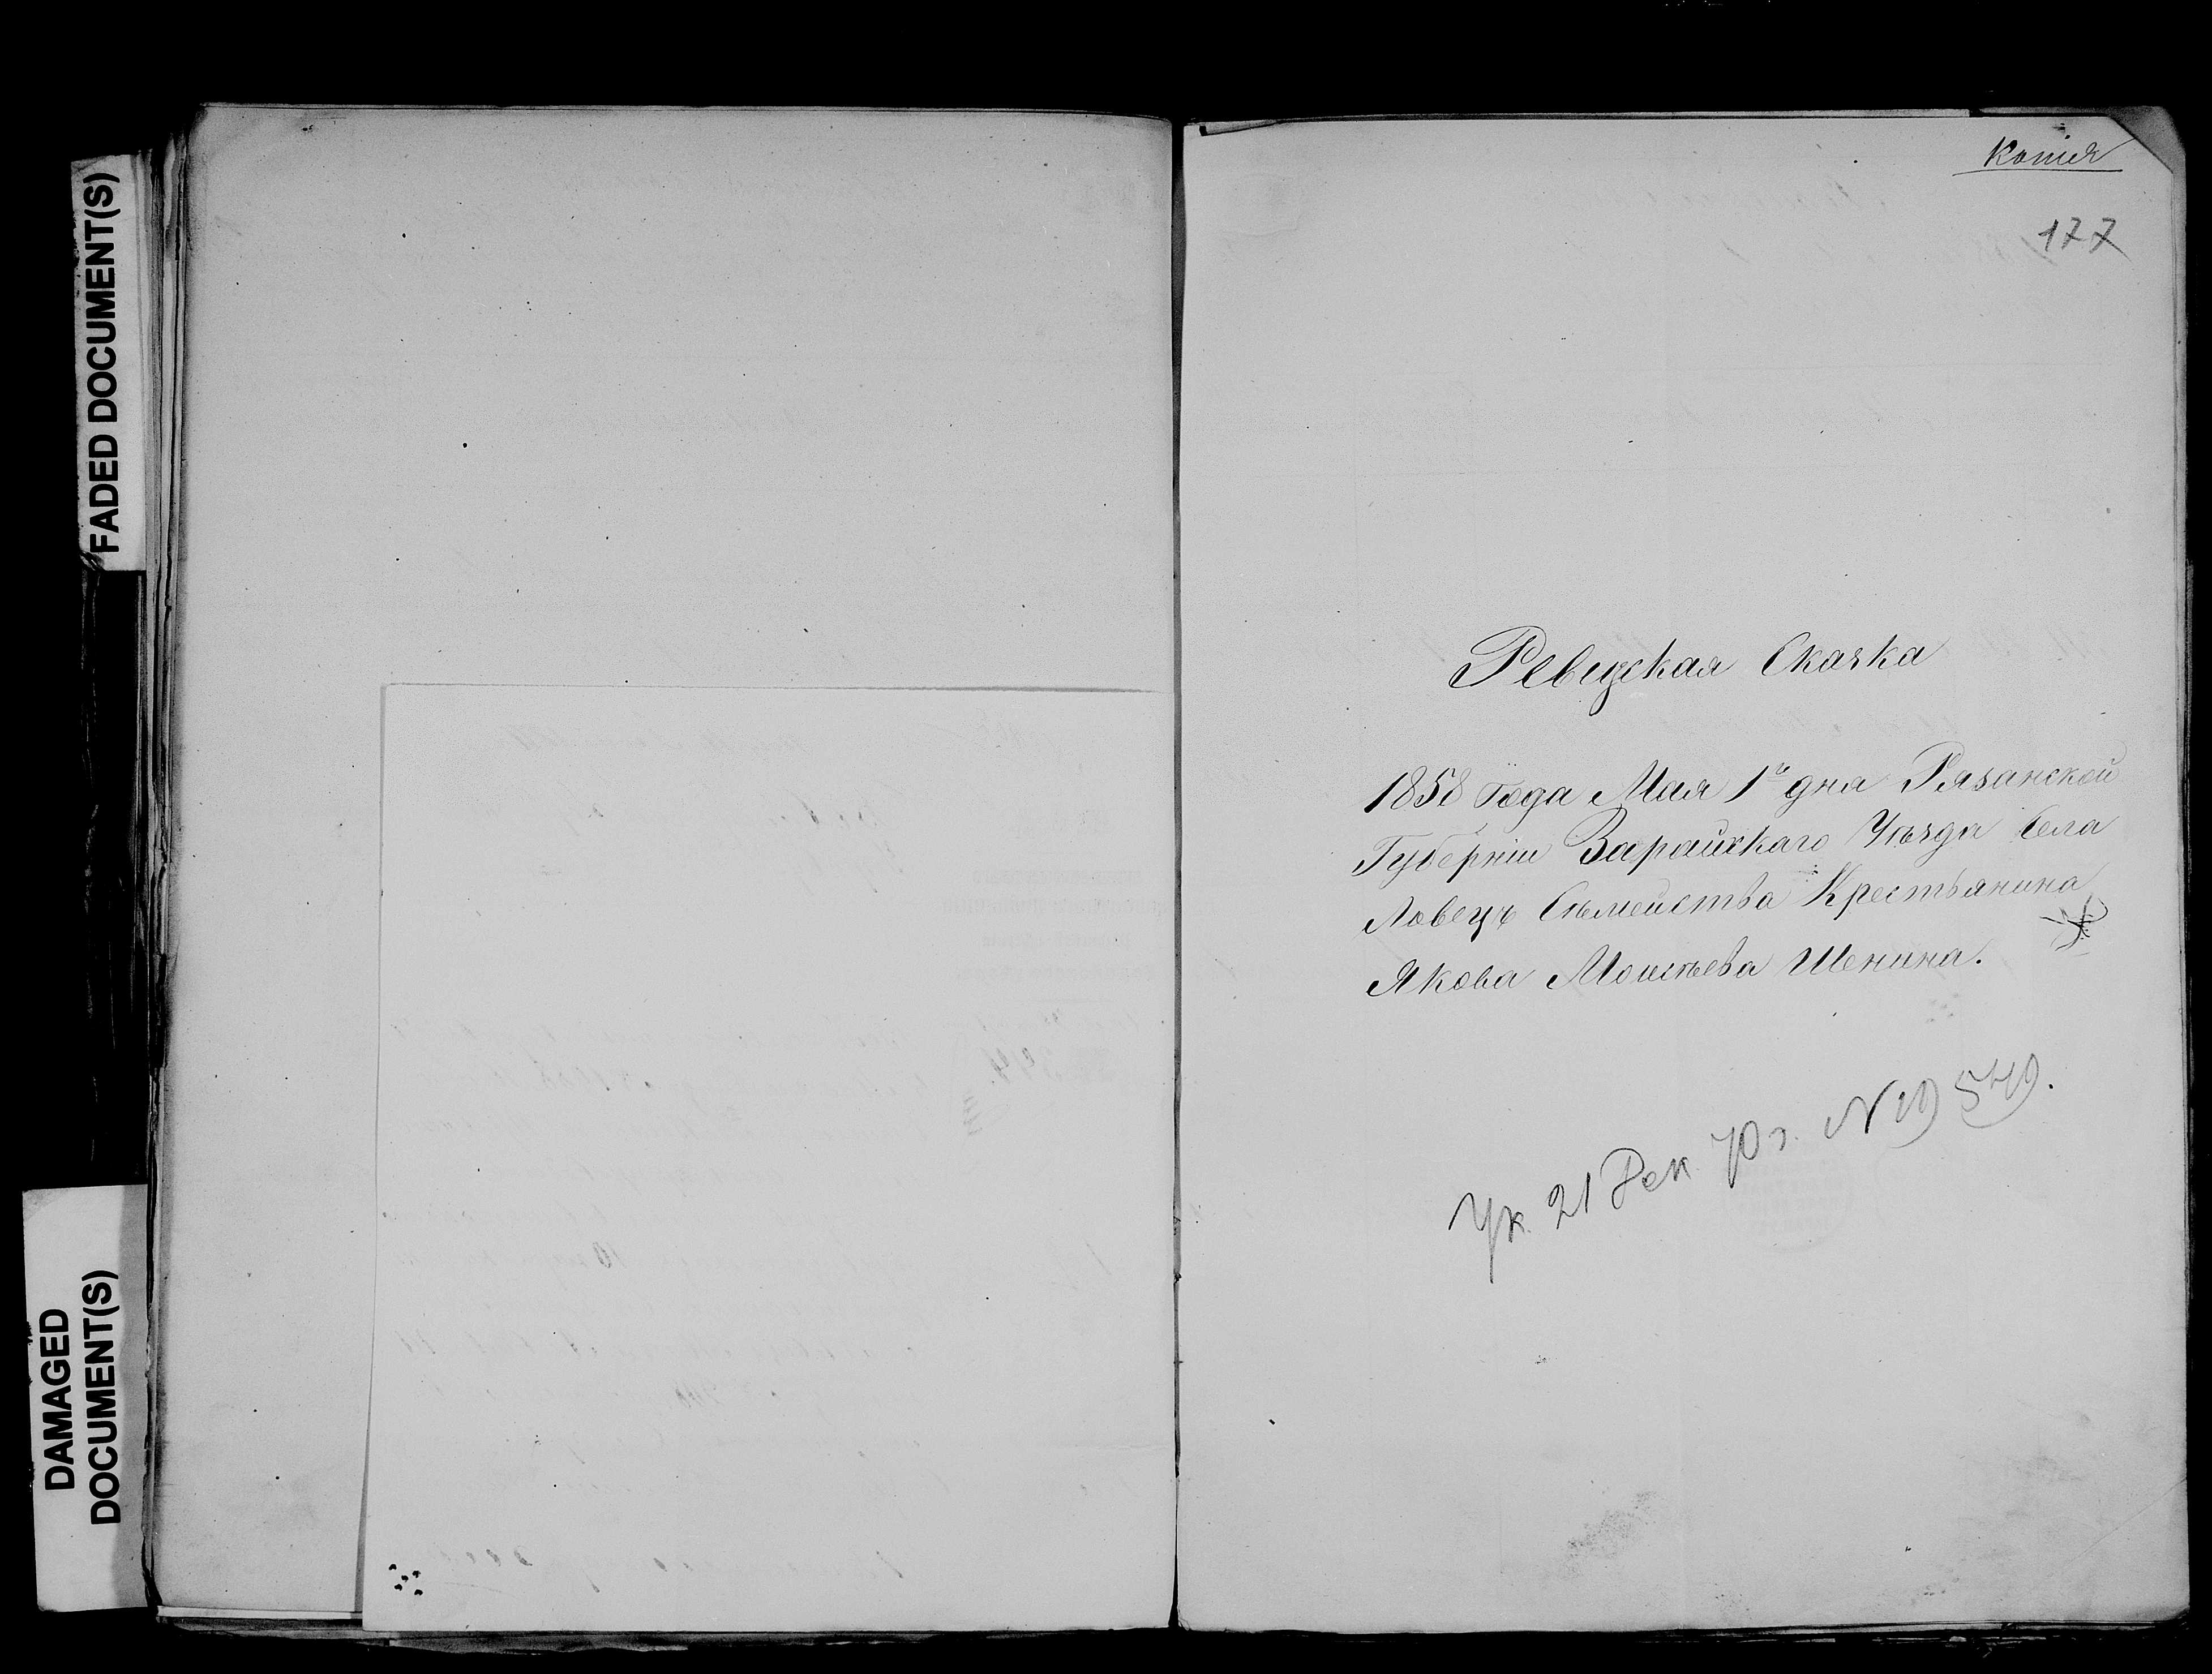 FADED DOCUMENT(S)
DAMAGED
DOCUMENT(S)
Копія
177
Ревизская Сказка
1858 года Мая 1го дня Рязанской
Губерніи Зарайскаго Уѣзда Села
Ловецъ Сѣмейства Крестьянина
Якова Моисѣева Шенина.
Ук. 21 Дек 70 г. N 19 579.